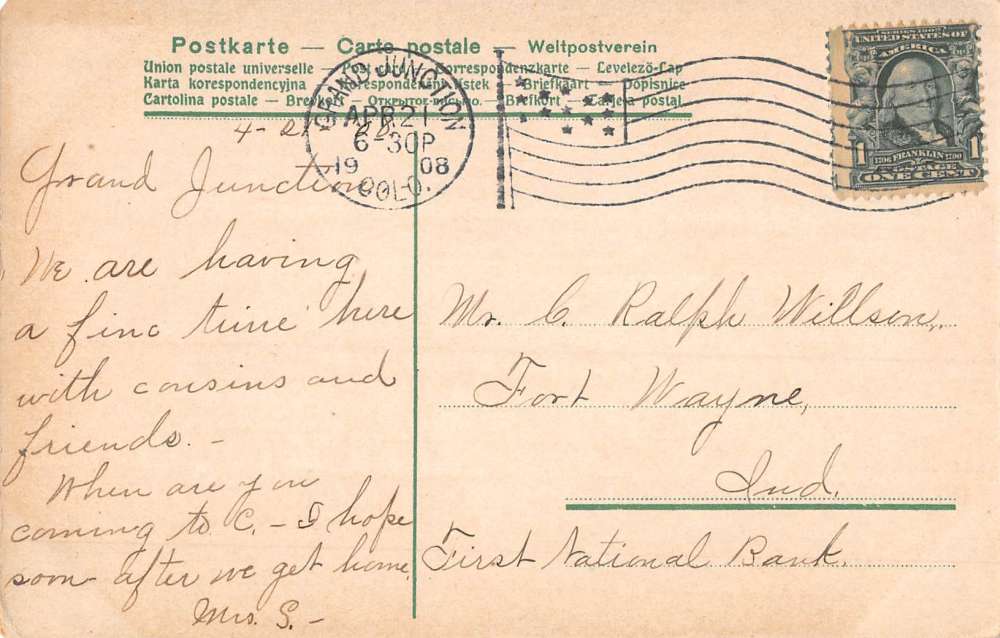 Postkarte — Carte postale — Weltpostverein
Union postale universelle — Post card — Correspondenzkarte — Levelező-Lap
Karta korespondencyjna — Korespondenční lístek — Briefkaart — Dopisnice
Cartolina postale — Brevkort — Открытое письмо. — Brefkort — Tarjeta postal.
GRAND JUNCTION
APR 21
6-30P
1908
COLO.
SERIES 1902
UNITED STATES OF
AMERICA
1 1
FRANKLIN
POSTAGE
ONE CENT
4-21
Grand Junction
We are having
a fine time here
with cousins and
friends. -
When are you
coming to C. - I hope
soon after we get home.
Mrs. S. -
Mr. C. Ralph Willson,
Fort Wayne,
Ind.
First National Bank.